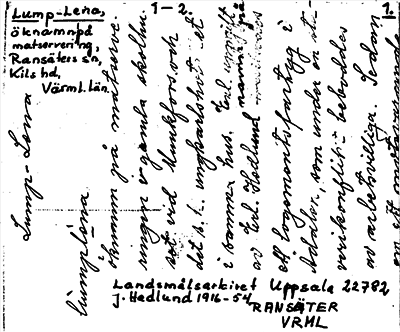 Lump-Lena,
öknamn på
matservering,
Ransäters sn,
Kils hd,
Värml. län.
1-2.
1.
Lump-Lena
lumpléna
öknamn på matserve-
ringen i gamla skolhu-
set vid Munkfors och
det s.k. ungkarlshotellet
i samma hus. Enl. uppgift
av Enl. Hedlund namnet på
ett logementsfartyg i
Ådalen, som under en ar-
varvkonflikt beboddes
av arbetsvilliga. Sedan
en ett motsvarande
Landsmålsarkivet Uppsala 22782
J. Hedlund 1916-54
RANSÄTER
VRML